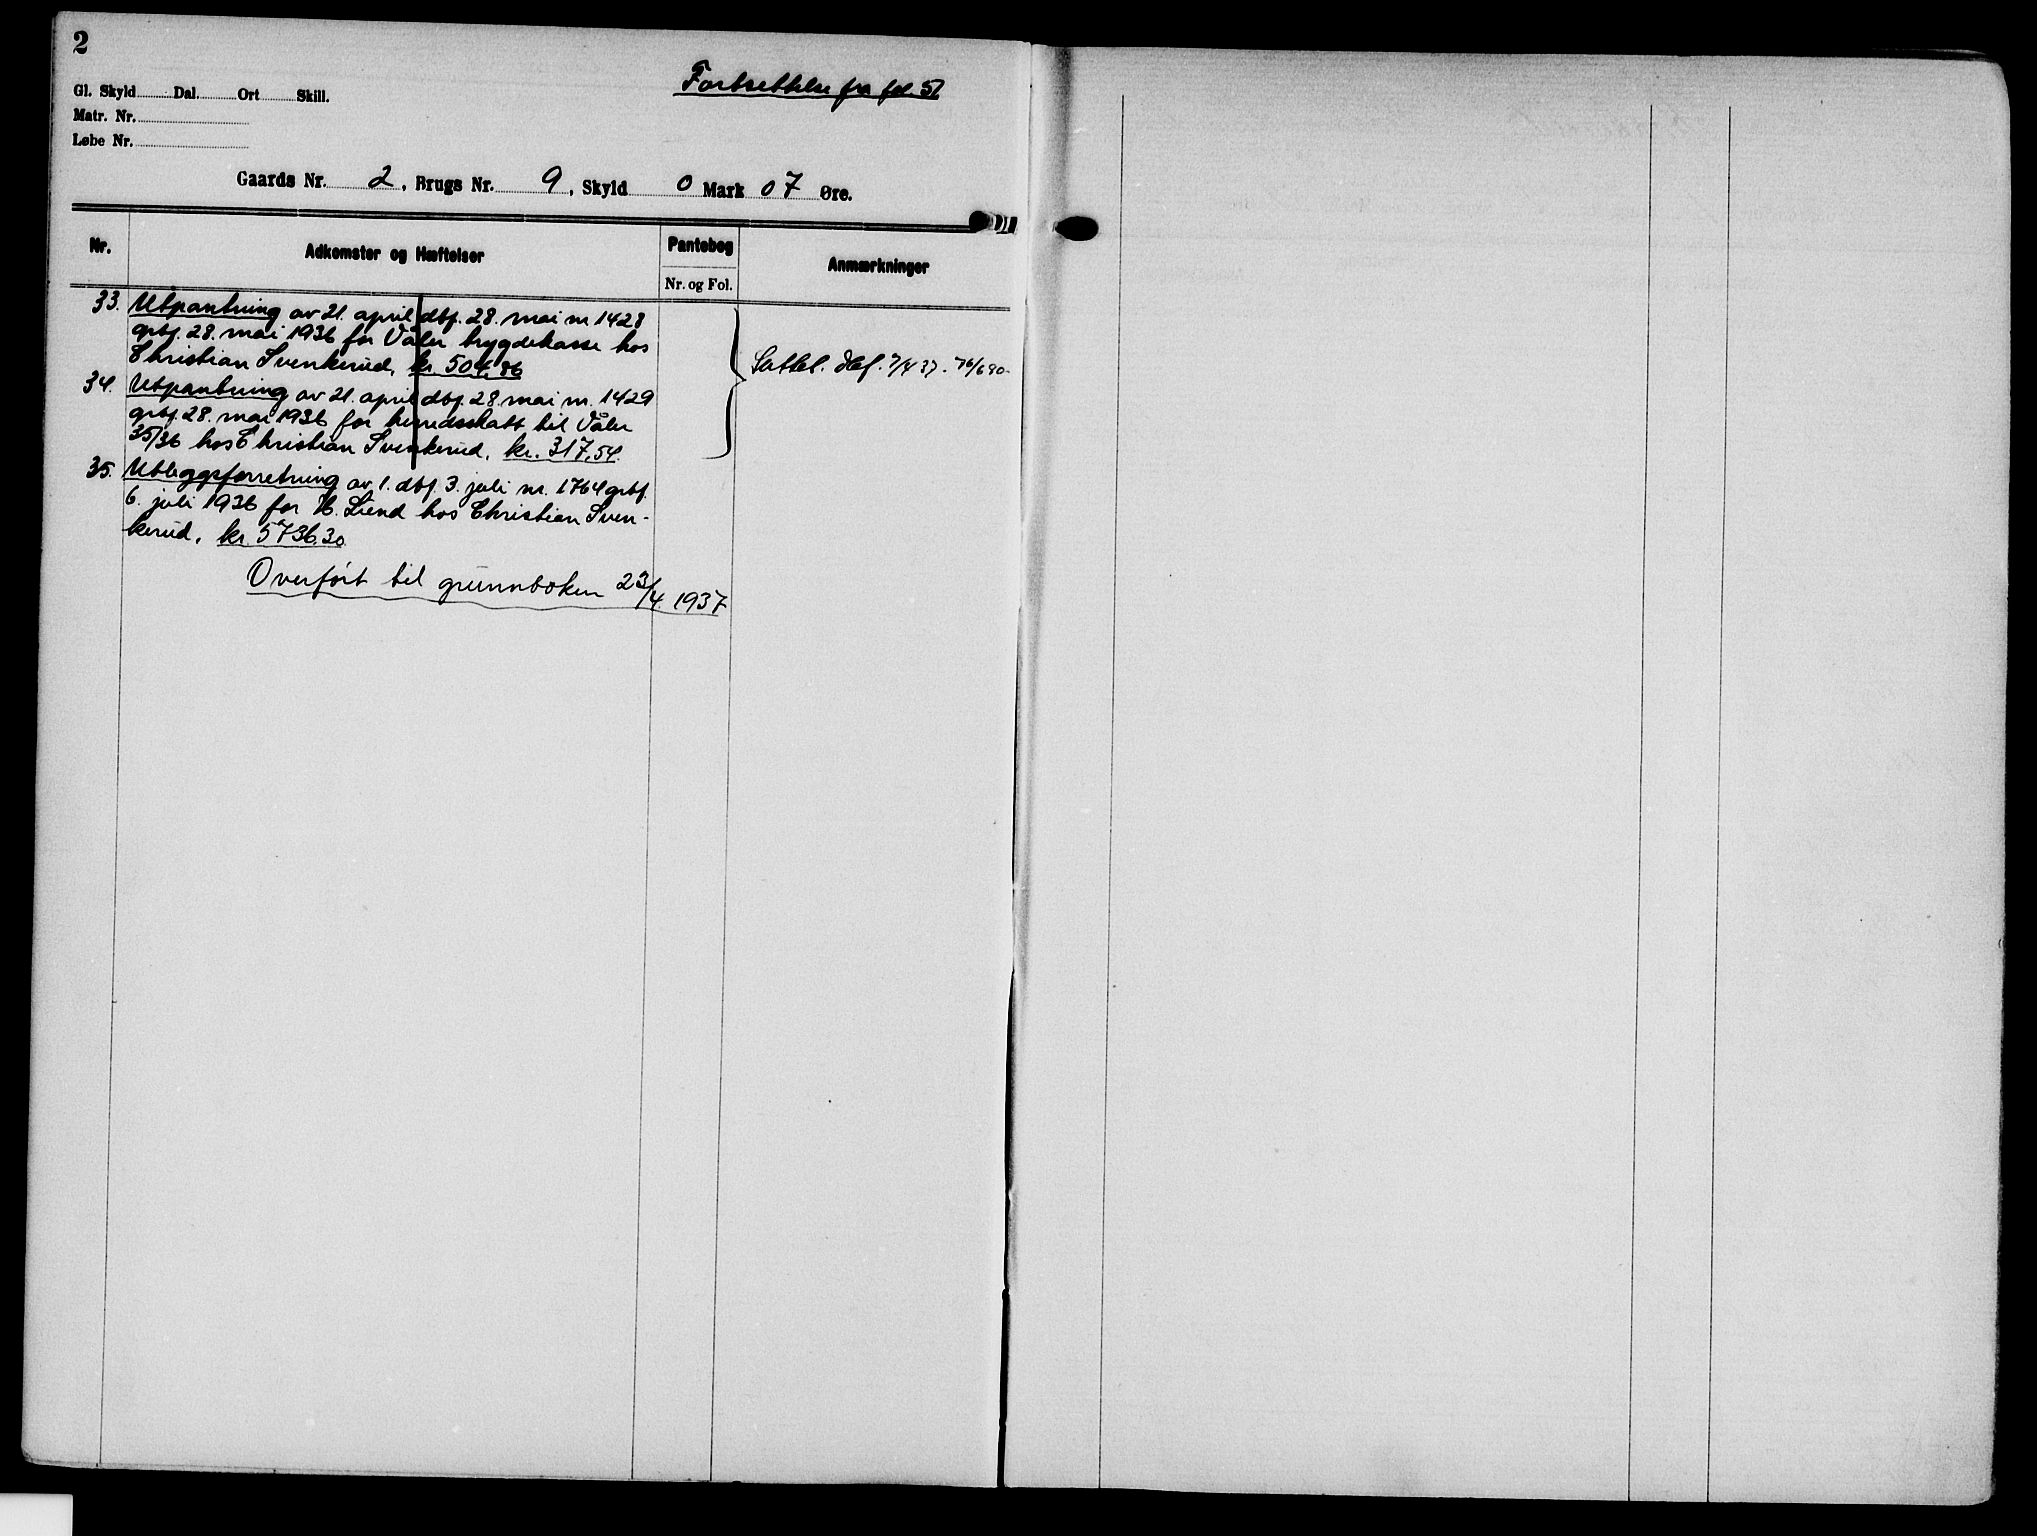 2
Fortsettelse fra fol. 51
Gl. Skyld Dal. Ort Skill.
Matr. Nr.
Løbe Nr.
Gaards Nr. 2, Brugs Nr. 9, Skyld 0 Mark 07 Øre.
Nr. Adkomster og Hæftelser Pantebog Anmærkninger
Nr. og Fol.
33. Utpantning av 21. april dbf. 28. mai nr 1428
grbf. 28. mai 1936 for Våler trygdekasse hos
Christian Svenkerud, kr. 504,86
Slettet. dbf. 7/4 37. 76/690
34. Utpantning av 21. april dbf. 28. mai nr. 1429
grbf. 28. mai 1936 for herredsskatt til Våler
35/36 hos Christian Svenkerud, kr. 317,54.
35. Utleggsforretning av 1. dbf. 3. juli nr. 1764 grbf.
6. juli 1936 for H. Liend hos Christian Sven-
kerud, kr. 5736.30
Overført til grunnboken 23/4. 1937